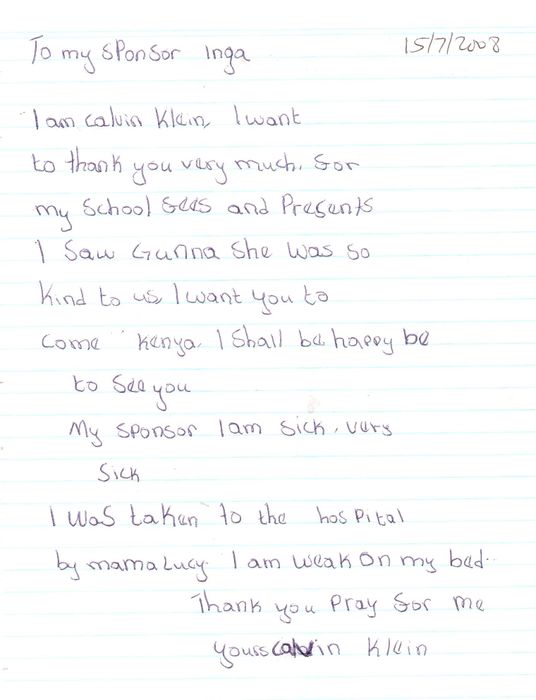 To my sponsor Inga
15/7/2008
I am calvin Klein, I want
to thank you very much. for
my School fees and Presents
I Saw Gunna She was so
kind to us, I want you to
come Kenya. I Shall be happy be
to See you
My sponsor I am Sick, very
Sick
I was taken to the hospital
by mama Lucy. I am weak on my bed..
Thank you Pray for me
yourss calvin Klein